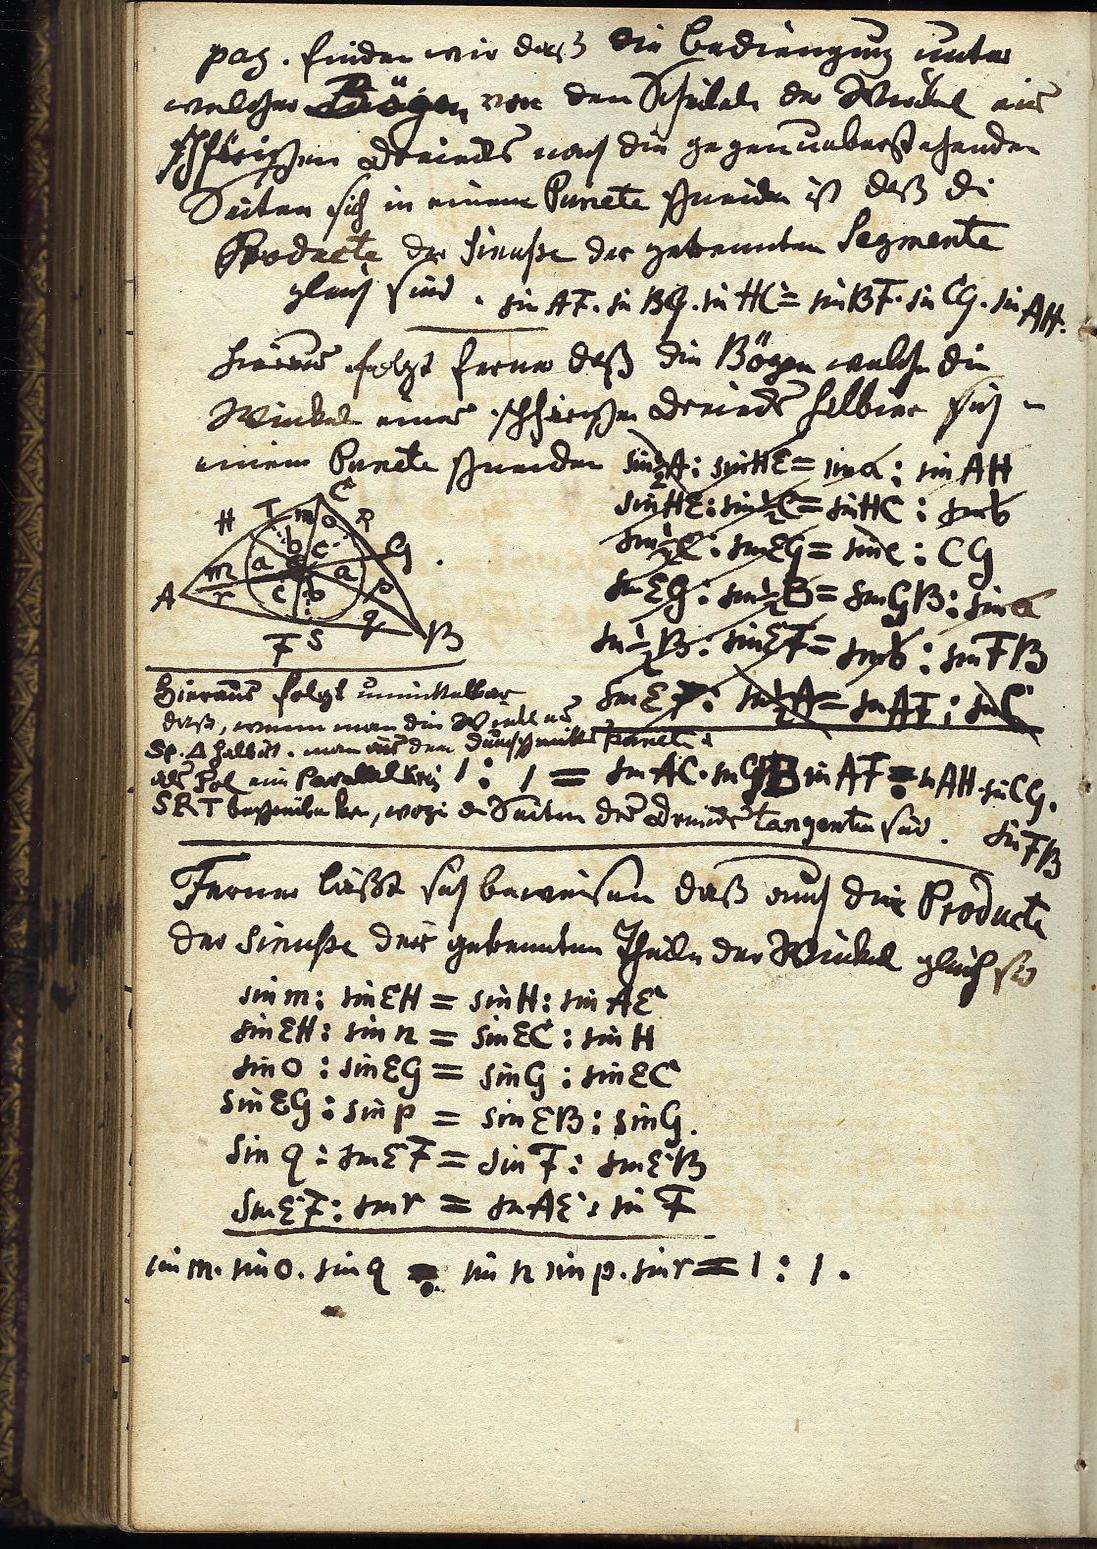 pag. finden wir daß die bedingung unter
welcher Bögen von den Scheiteln der Winkel eines
sphärischen Dreiecks nach den gegenueberstehenden
Seiten sich in einem Puncte schneiden ist daß die
Producte der Sinuße der getrennten Segmente
gleich sind . sin AF. sin BG. sin HC = sin BF. sin CG. sin AH.
Hieraus folgt ferner daß die Bögen welche die
Winkel eines sphärischen Dreiecks halbiren sich in
einem Puncte schneiden
sin ½A : sin HE = sin a : sin AH
sin HE : sin ½C = sin HC : sin b
sin ½C : sin EG = sin c : CG
sin EG : sin ½B = sin GB : sin a
sin ½B : sin EF = sin b : sin FB
sin EF : sin ½A = sin AF : sin C
C
H T m o R
b c G
m a E a
A r c b p
q B
F S
Hieraus folgt unmittelbar
daß, wenn man die Winkel eines
Sp. Δ halbirt. man aus dem Durchschnitts Punct
als Pol ein Parallelkreis
1 : 1 = sin AC. sin GB sin AF : sin AH. sin CG.
sin FB
SRT beschreiben kan, wozu die Seiten des Dreiecks Tangenten sind .
Ferner läßt sich beweisen daß auch die Producte
der Sinuße der getrennten Theile der Winkel gleich sind
sin m : sin EH = sin H : sin AE
sin EH : sin n = sin EC : sin H
sin o : sin EG = sin G : sin EC
sin EG : sin p = sin EB : sin G.
sin q : sin EF = sin F : sin EB
sin EF : sin r = sin AE : sin F
sin m. sin o. sin q : sin n sin p. sin r = 1 : 1 .